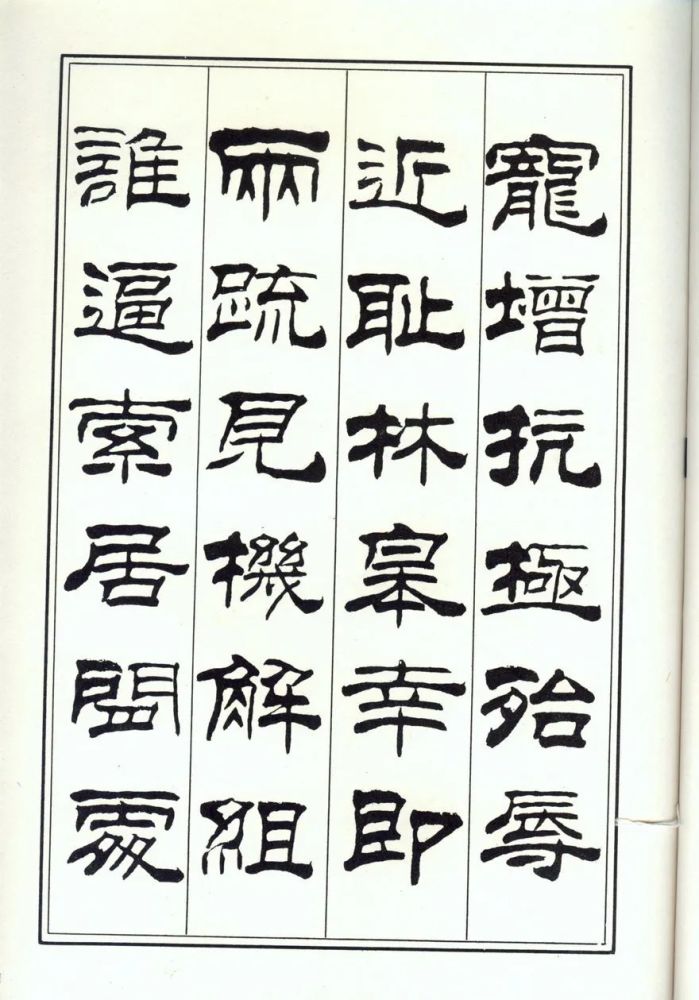 寵增抗極殆辱
近耻林皋幸即
兩疏見機解組
誰逼索居閒處